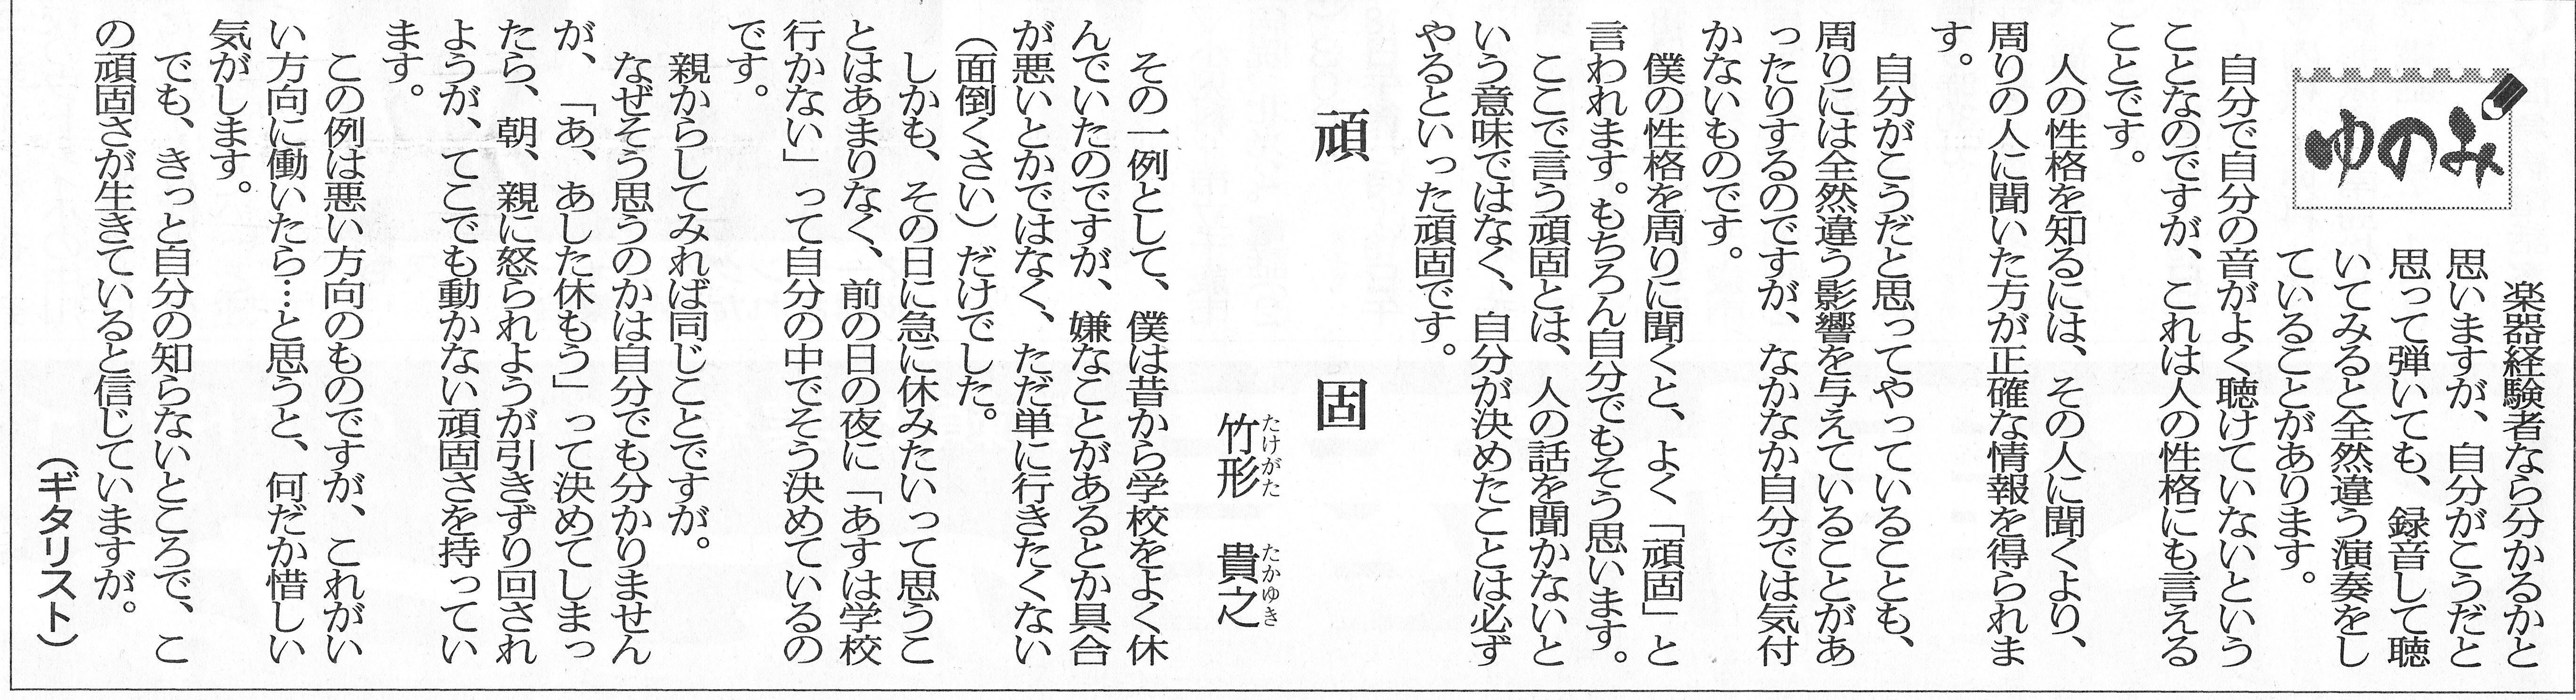 ゆのみ
楽器経験者なら分かるかと
思いますが、自分がこうだと
思って弾いても、録音して聴
いてみると全然違う演奏をし
ていることがあります。
自分で自分の音がよく聴けていないという
ことなのですが、これは人の性格にも言える
ことです。
人の性格を知るには、その人に聞くより、
周りの人に聞いた方が正確な情報を得られま
す。
自分がこうだと思ってやっていることも、
周りには全然違う影響を与えていることがあ
ったりするのですが、なかなか自分では気付
かないものです。
僕の性格を周りに聞くと、よく「頑固」と
言われます。もちろん自分でもそう思います。
ここで言う頑固とは、人の話を聞かないと
いう意味ではなく、自分が決めたことは必ず
やるといった頑固です。
頑固
竹形 貴之
たけがた たかゆき
その一例として、僕は昔から学校をよく休
んでいたのですが、嫌なことがあるとか具合
が悪いとかではなく、ただ単に行きたくない
（面倒くさい）だけでした。
しかも、その日に急に休みたいって思うこ
とはあまりなく、前の日の夜に「あすは学校
行かない」って自分の中でそう決めているの
です。
親からしてみれば同じことですが。
なぜそう思うのかは自分でも分かりません
が、「あ、あした休もう」って決めてしまっ
たら、朝、親に怒られようが引きずり回され
ようが、てこでも動かない頑固さを持ってい
ます。
この例は悪い方向のものですが、これがい
い方向に働いたら…と思うと、何だか惜しい
気がします。
でも、きっと自分の知らないところで、こ
の頑固さが生きていると信じていますが。
（ギタリスト）